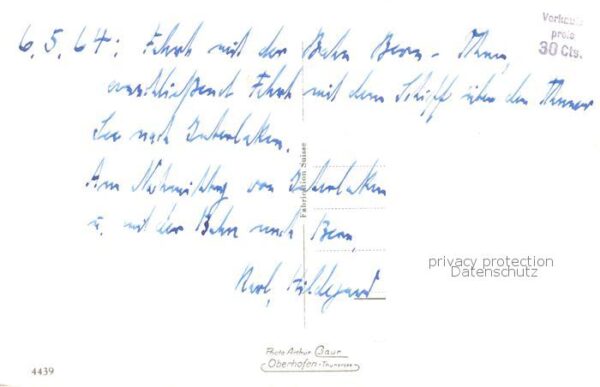 Verkaufs
preis
30 Cts.
6.5.64: Fahrt mit der Bahn Bern - Thun,
anschließend Fahrt mit dem Schiff über den Thuner
See nach Interlaken.
Am Nachmittag von Interlaken
u. mit der Bahn nach Bern
Karl, Hildegard
Fabrication Suisse
privacy protection
Datenschutz
Photo Arthur Baur
Oberhofen-Thunersee
4439